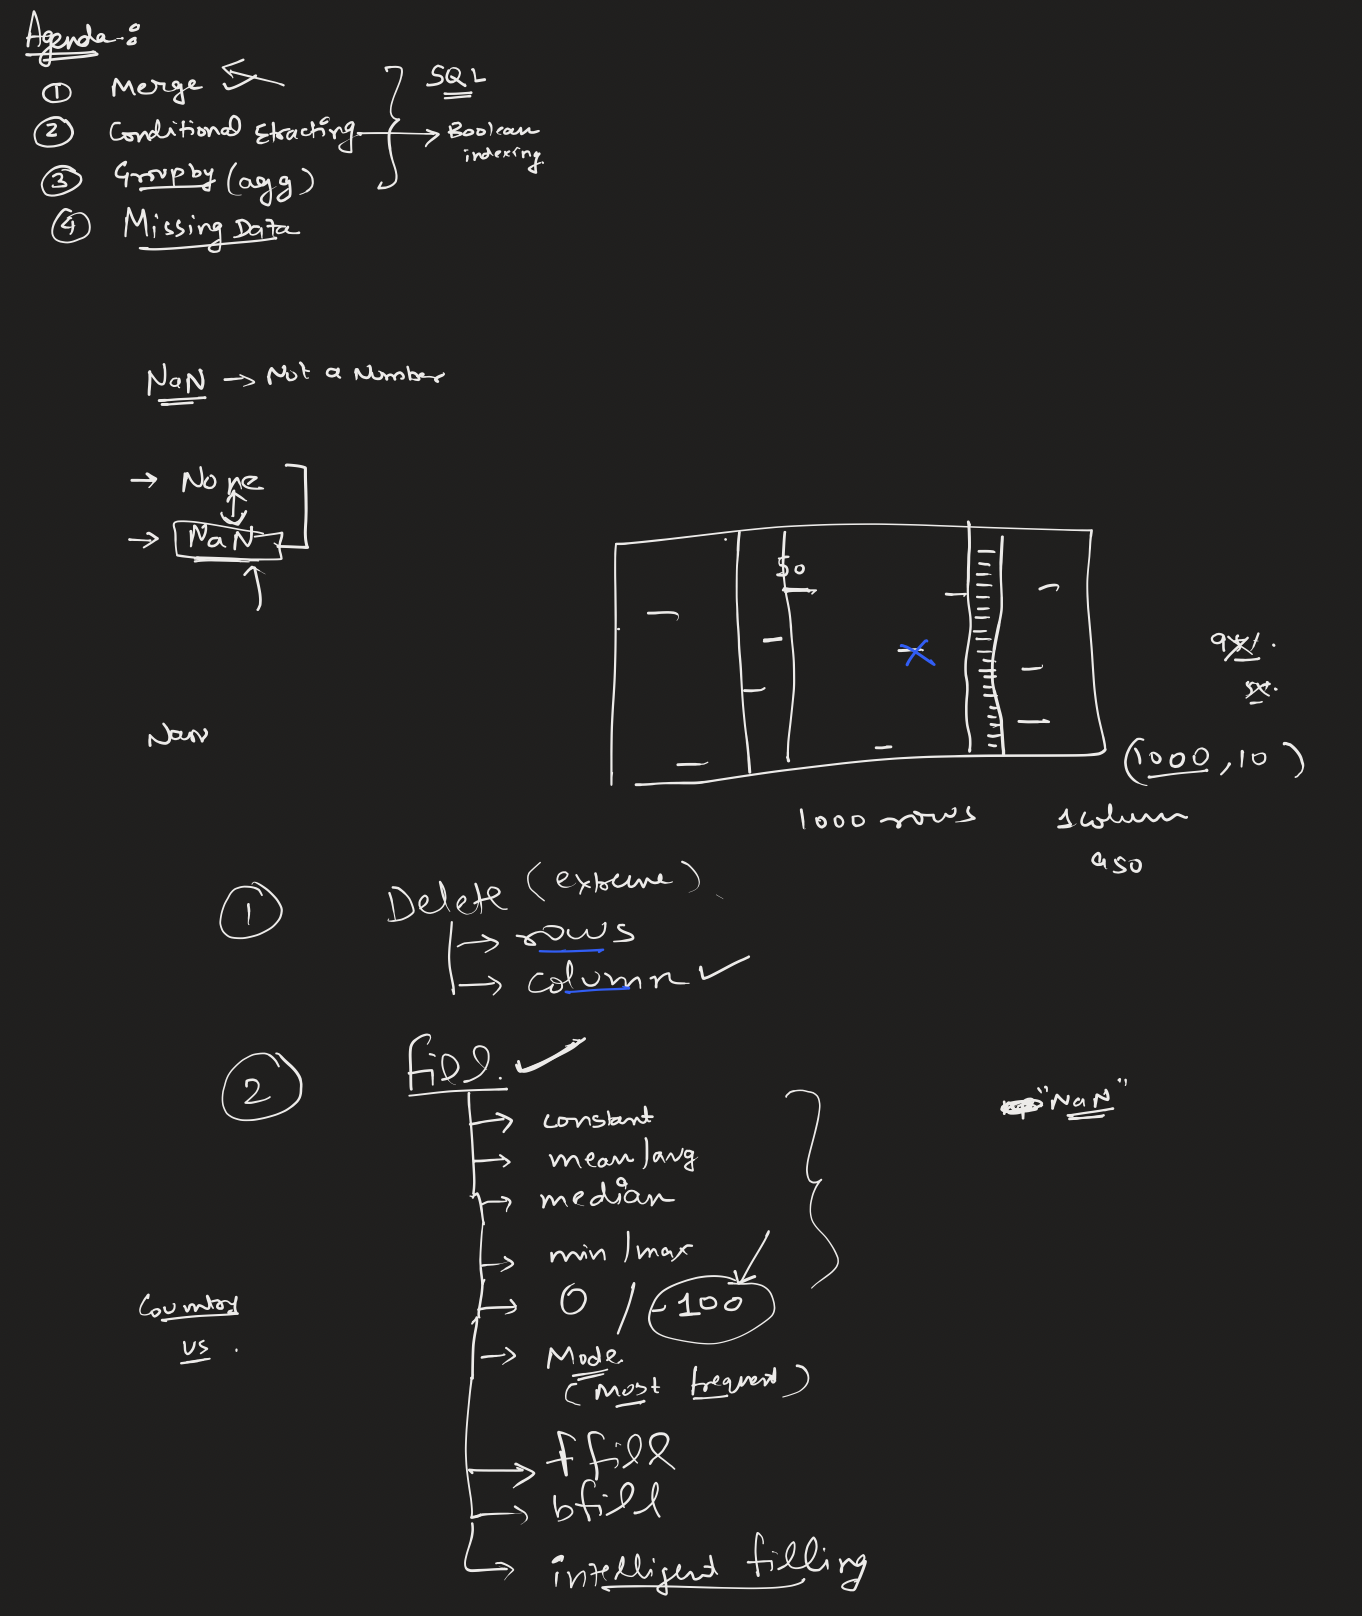 Agenda :
① Merge
SQL
② Conditional Etracting → Boolean indexing
③ Groupby (agg)
④ Missing Data
NaN → Not a Number
→ None
→ NaN
50
Nan
(1000, 10)
1000 rows
1 column
950
① Delete (extreme)
→ rows
→ column ✓
② fill. ✓
"NaN"
→ constant
→ mean/avg
→ median
→ min/max
→ 0 / -100
Country
US .
→ Mode
(Most frequent)
→ ffill
→ bfill
→ intelligent filling